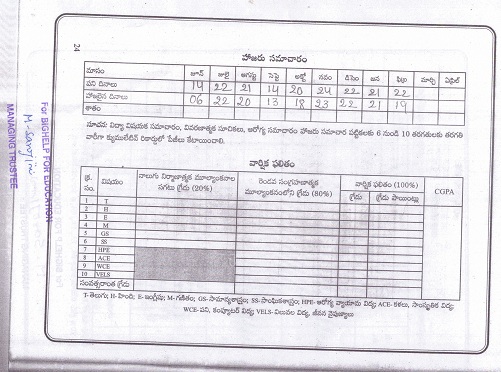 24
హాజరు సమాచారం
మాసం జూన్ జులై ఆగస్టు సెప్టె అక్టో నవం డిసెం జన ఫిబ్ర మార్చి ఏప్రిల్
పని దినాలు 14 22 21 14 20 24 22 21 22
హాజరైన దినాలు 06 22 20 13 18 23 22 21 19
శాతం
సూచన: విద్యా విషయక సమాచారం, వివరణాత్మక సూచికలు, ఆరోగ్య సమాచారం హాజరు సమాచార పట్టికలకు 6 నుండి 10 తరగతులకు తరగతి
వారీగా క్యుములేటివ్ రికార్డులో పేజీలు కేటాయించాలి.
వార్షిక ఫలితం
క్ర. సం. విషయం నాలుగు నిర్మాణాత్మక మూల్యాంకనాల సగటు గ్రేడు (20%) రెండవ సంగ్రహణాత్మక మూల్యాంకనంలోని గ్రేడు (80%) వార్షిక ఫలితం (100%) CGPA
గ్రేడు గ్రేడు పాయింట్లు
1 T
2 H
3 E
4 M
5 GS
6 SS
7 HPE
8 ACE
9 WCE
10 VELS
సంవత్సరాంత గ్రేడు
T- తెలుగు; H-హింది; E-ఇంగ్లీషు; M-గణితం; GS-సామాన్యశాస్త్రం; SS-సాంఘికశాస్త్రం; HPE-ఆరోగ్య వ్యాయామ విద్య; ACE-కళలు, సాంస్కృతిక విద్య;
WCE-పని, కంప్యూటర్ విద్య; VELS-విలువల విద్య, జీవన నైపుణ్యాలు
For BIGHELP FOR EDUCATION
MANAGING TRUSTEE